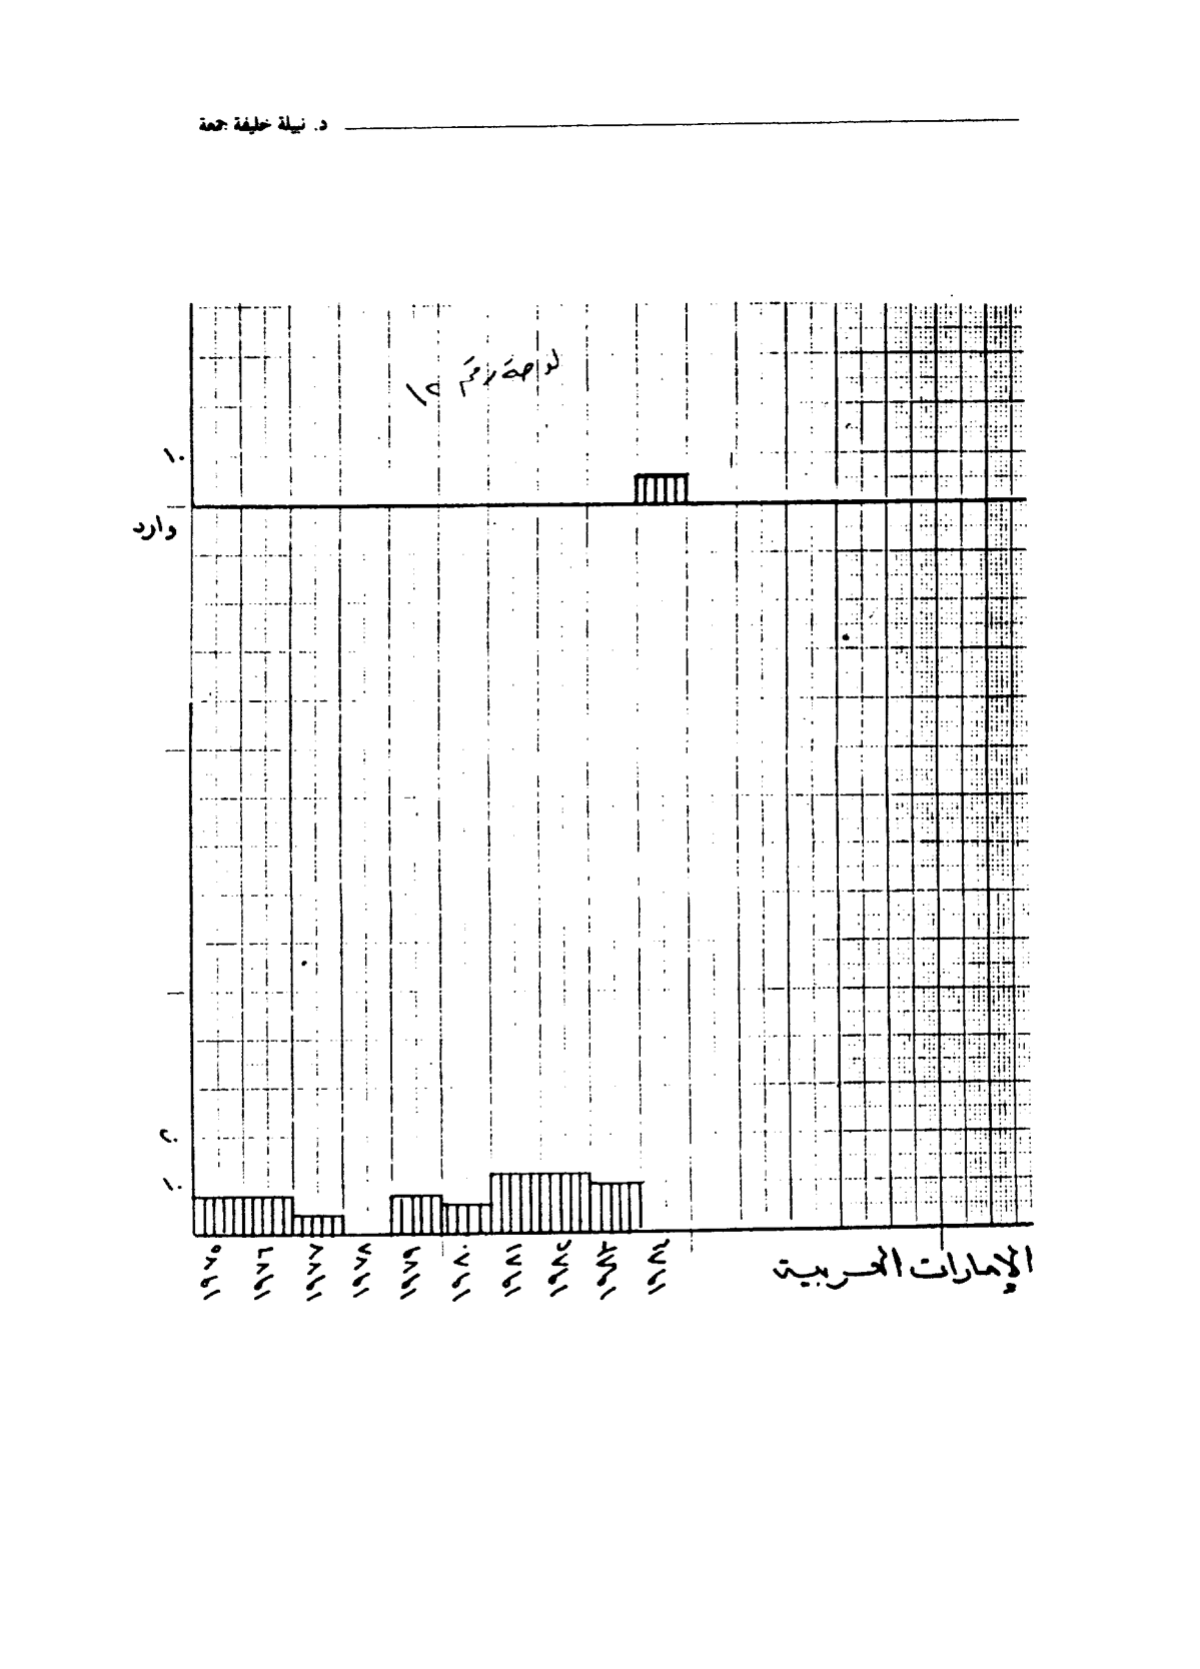 د. نبيلة خليفة جمعة
لوحة رقم ١٢
١٠
وارد
٢٠
١٠
١٩٧٥ ١٩٧٦ ١٩٧٧ ١٩٧٨ ١٩٧٩ ١٩٨٠ ١٩٨١ ١٩٨٢ ١٩٨٣ ١٩٨٤
الإمارات العربية